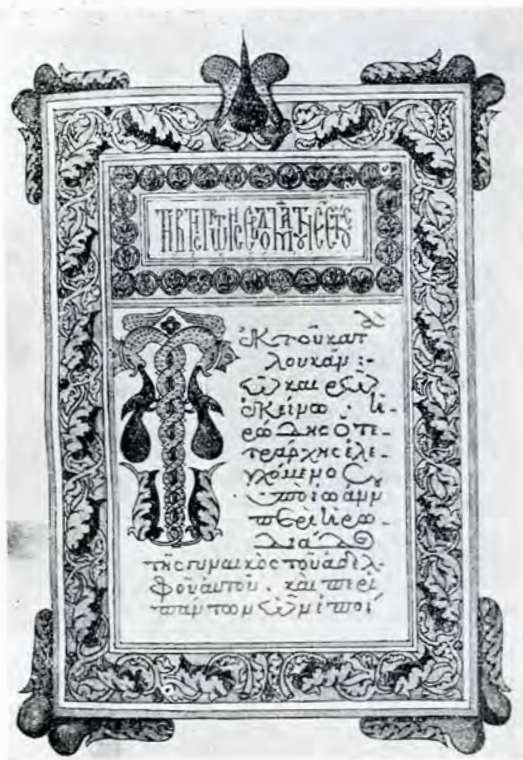 ἐκ τοῦ κατ
λουκαν :-
Τῶ καιρῶ
ἐκείνω . ἡ-
ρώδης ὁ τε-
τράρχης ἐλε-
γχόμενος ὑ
πὸ ἰωάνν
περὶ ἡρω-
διάδο
τῆς γυναικὸς τοῦ ἀδελ-
φοῦ αὐτοῦ . καὶ περὶ
πάντων ὧν ἐποί